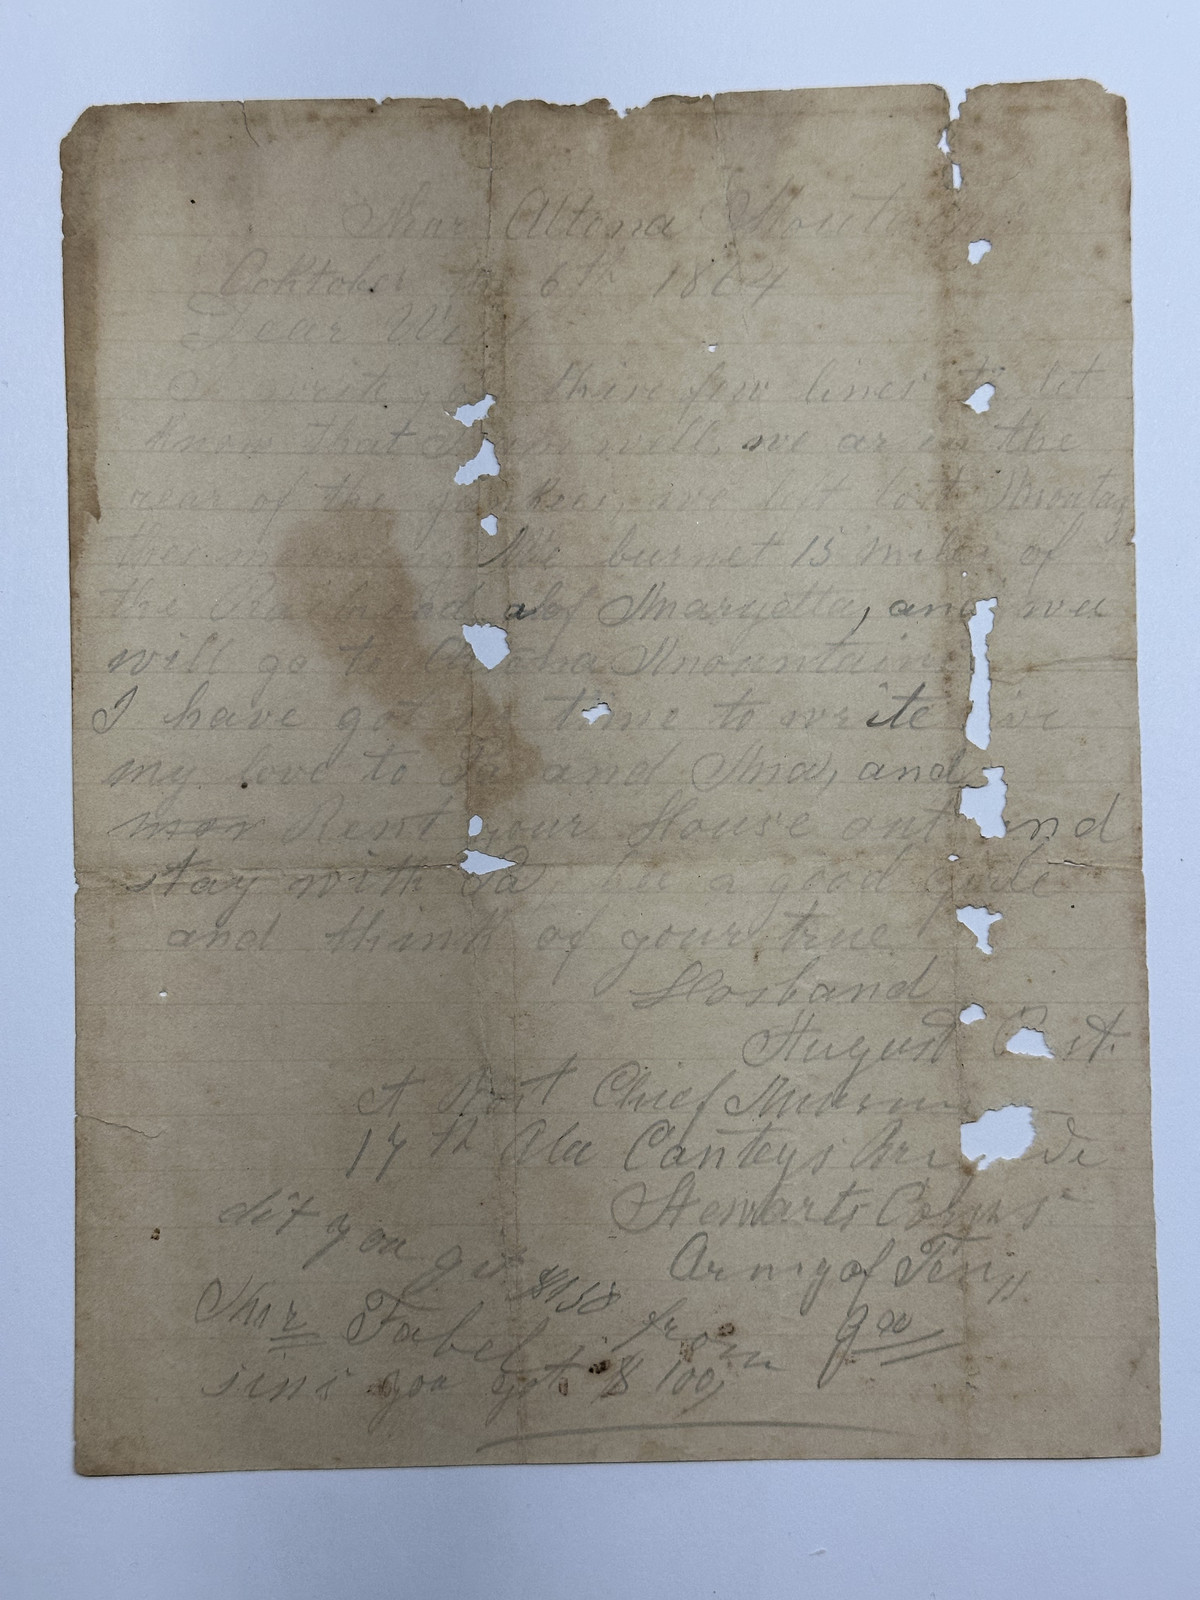 Near Altona Mountain
Ocktober the 6th 1864
Dear Wife
I write you thise few lines to let
know that am well, we ar in the
rear of the yankees, we left lost Mountay
thes morning We burnet 15 miles of
the Railroad abof Maryetta, and wee
will go to Altona Mountain
I have got no time to write give
my love to Pa and Ma, and
Rent your House out and
stay with Pa, bee a good
and think of your true
Hosband
August
At Post Chief
17th Ala Canteys Brigade
Stewarts Corps
Army of Tenn
dit you git $158 from
Mr Fabel
sins you got $100,